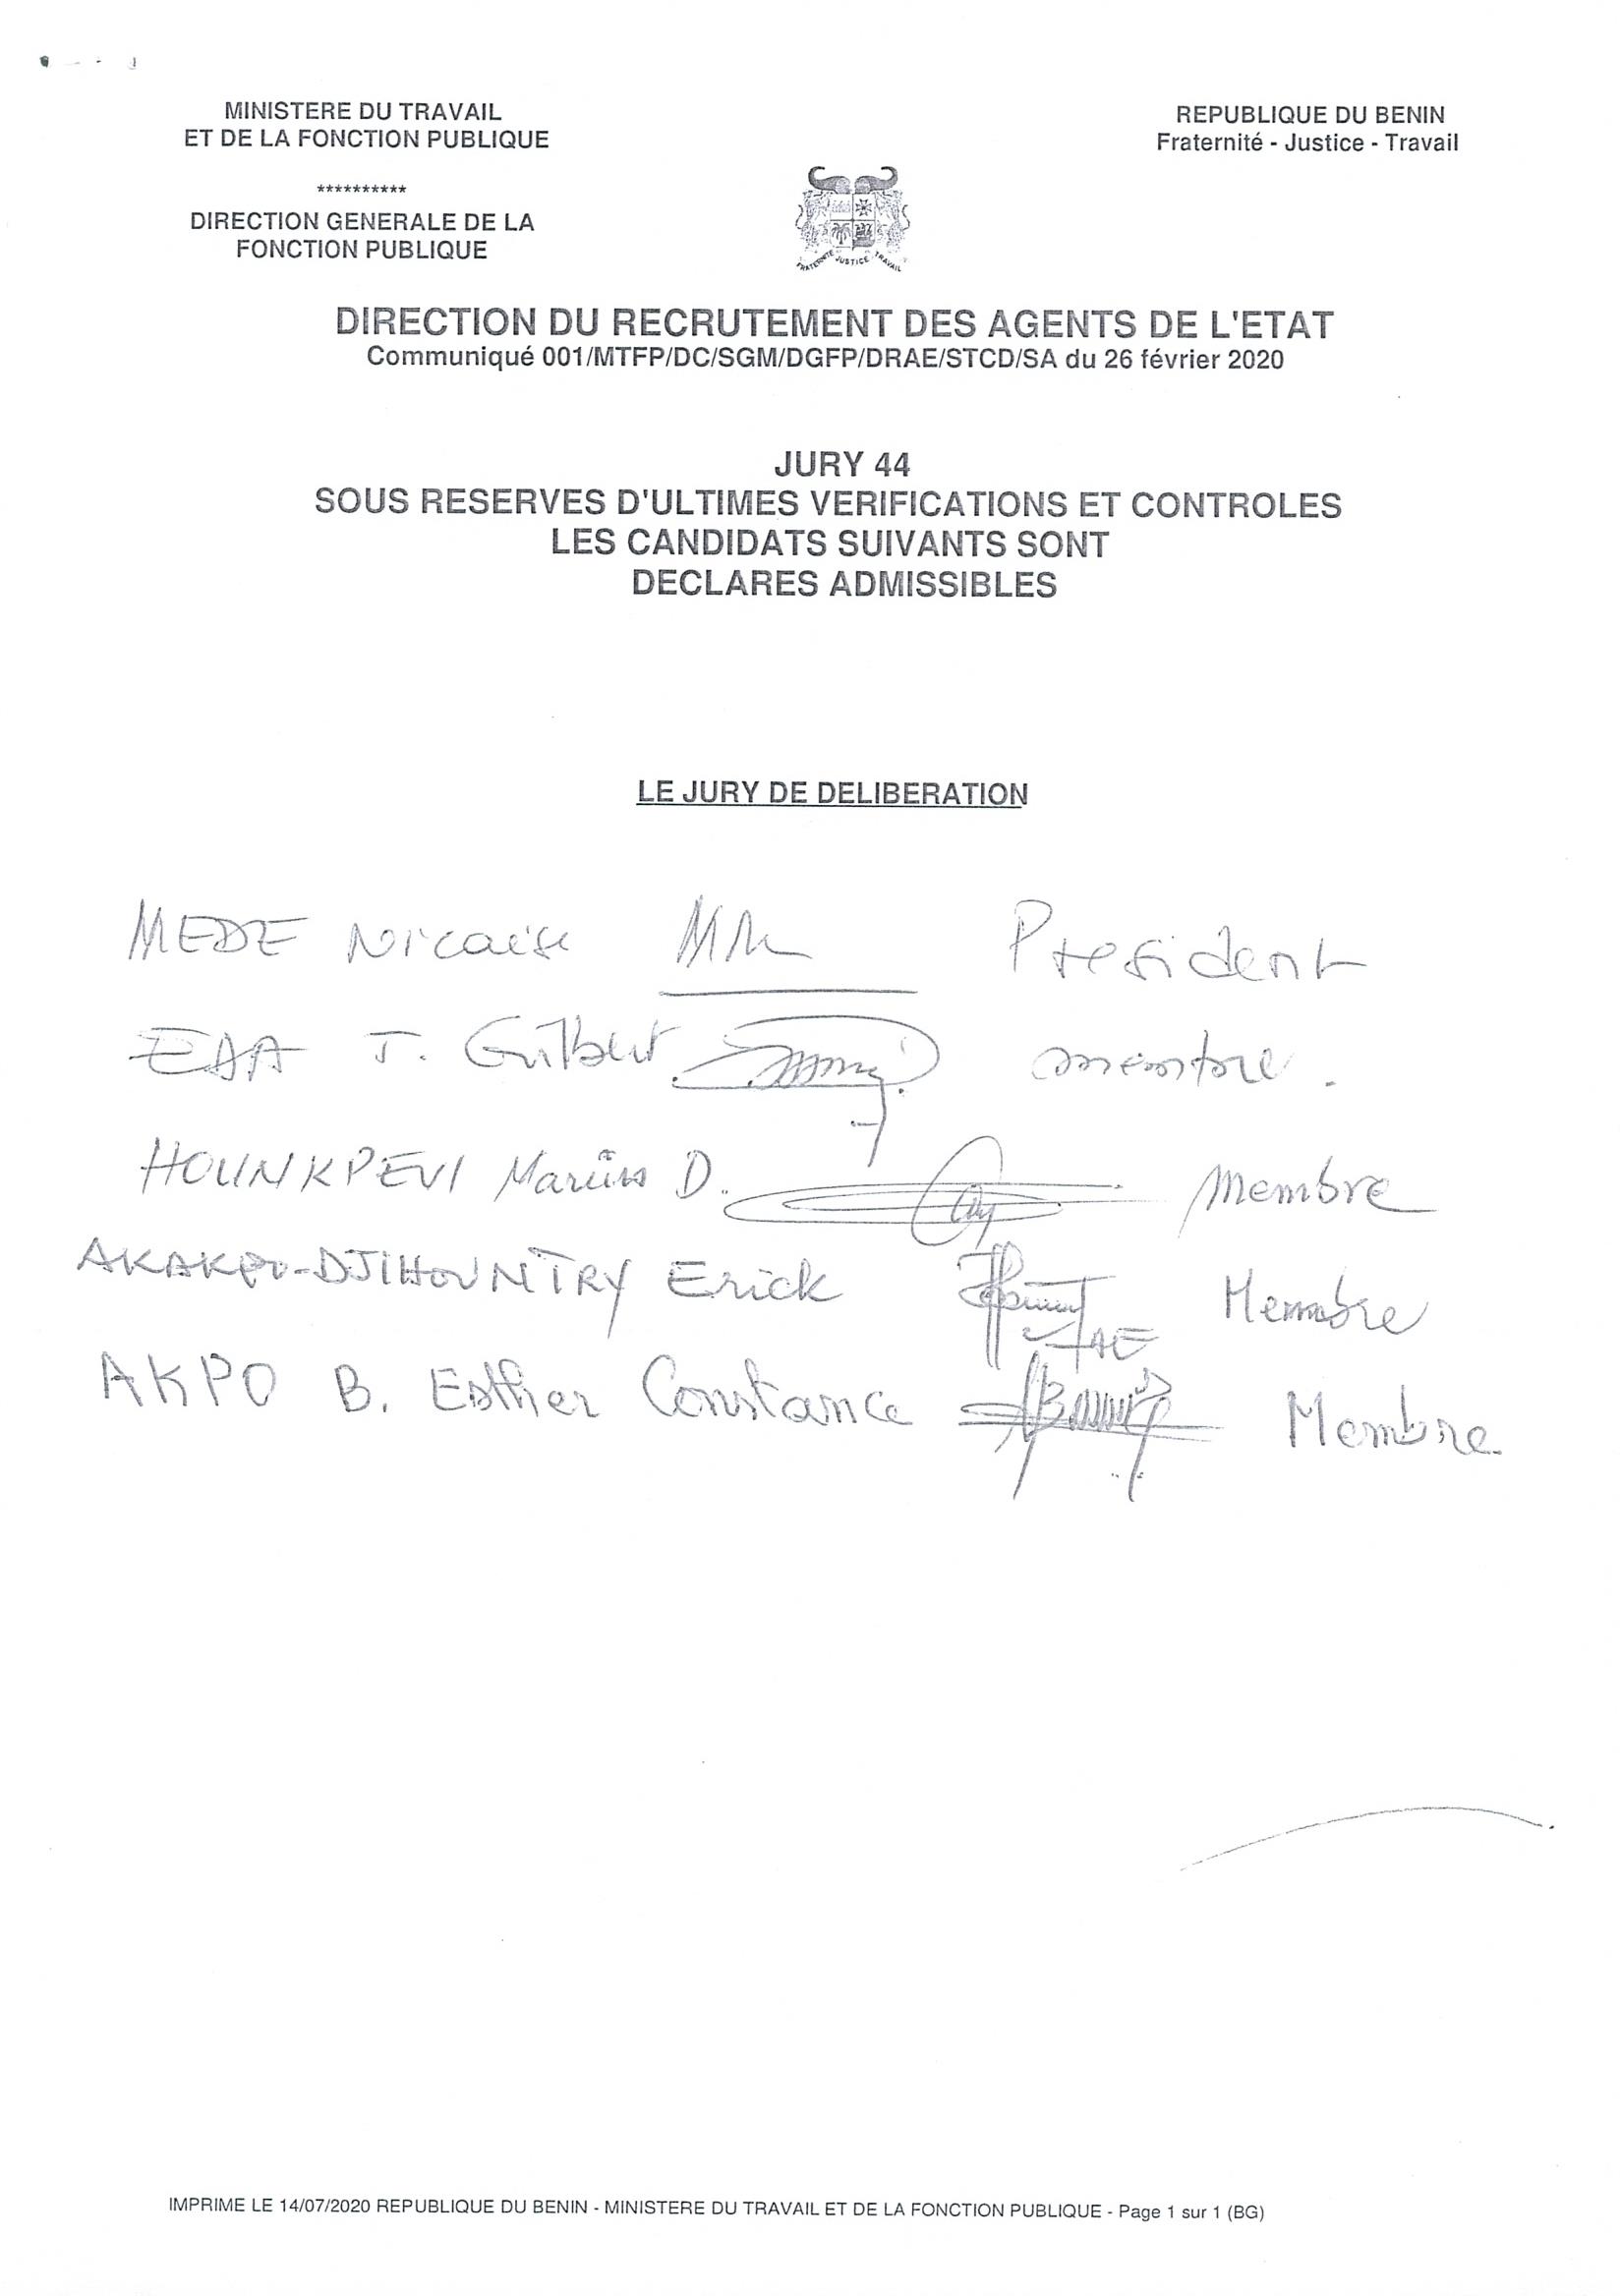 MINISTERE DU TRAVAIL
ET DE LA FONCTION PUBLIQUE
**********
DIRECTION GENERALE DE LA
FONCTION PUBLIQUE
REPUBLIQUE DU BENIN
Fraternité - Justice - Travail
FRATERNITE JUSTICE TRAVAIL
DIRECTION DU RECRUTEMENT DES AGENTS DE L'ETAT
Communiqué 001/MTFP/DC/SGM/DGFP/DRAE/STCD/SA du 26 février 2020
JURY 44
SOUS RESERVES D'ULTIMES VERIFICATIONS ET CONTROLES
LES CANDIDATS SUIVANTS SONT
DECLARES ADMISSIBLES
LE JURY DE DELIBERATION
MEDE Nicaise President
J. Gilbert membre.
HOUNKPEVI Marius D. Membre
AKAKPO-DJIHOUNTRY Erick Membre
AKPO B. Esther Constance Membre
IMPRIME LE 14/07/2020 REPUBLIQUE DU BENIN - MINISTERE DU TRAVAIL ET DE LA FONCTION PUBLIQUE - Page 1 sur 1 (BG)